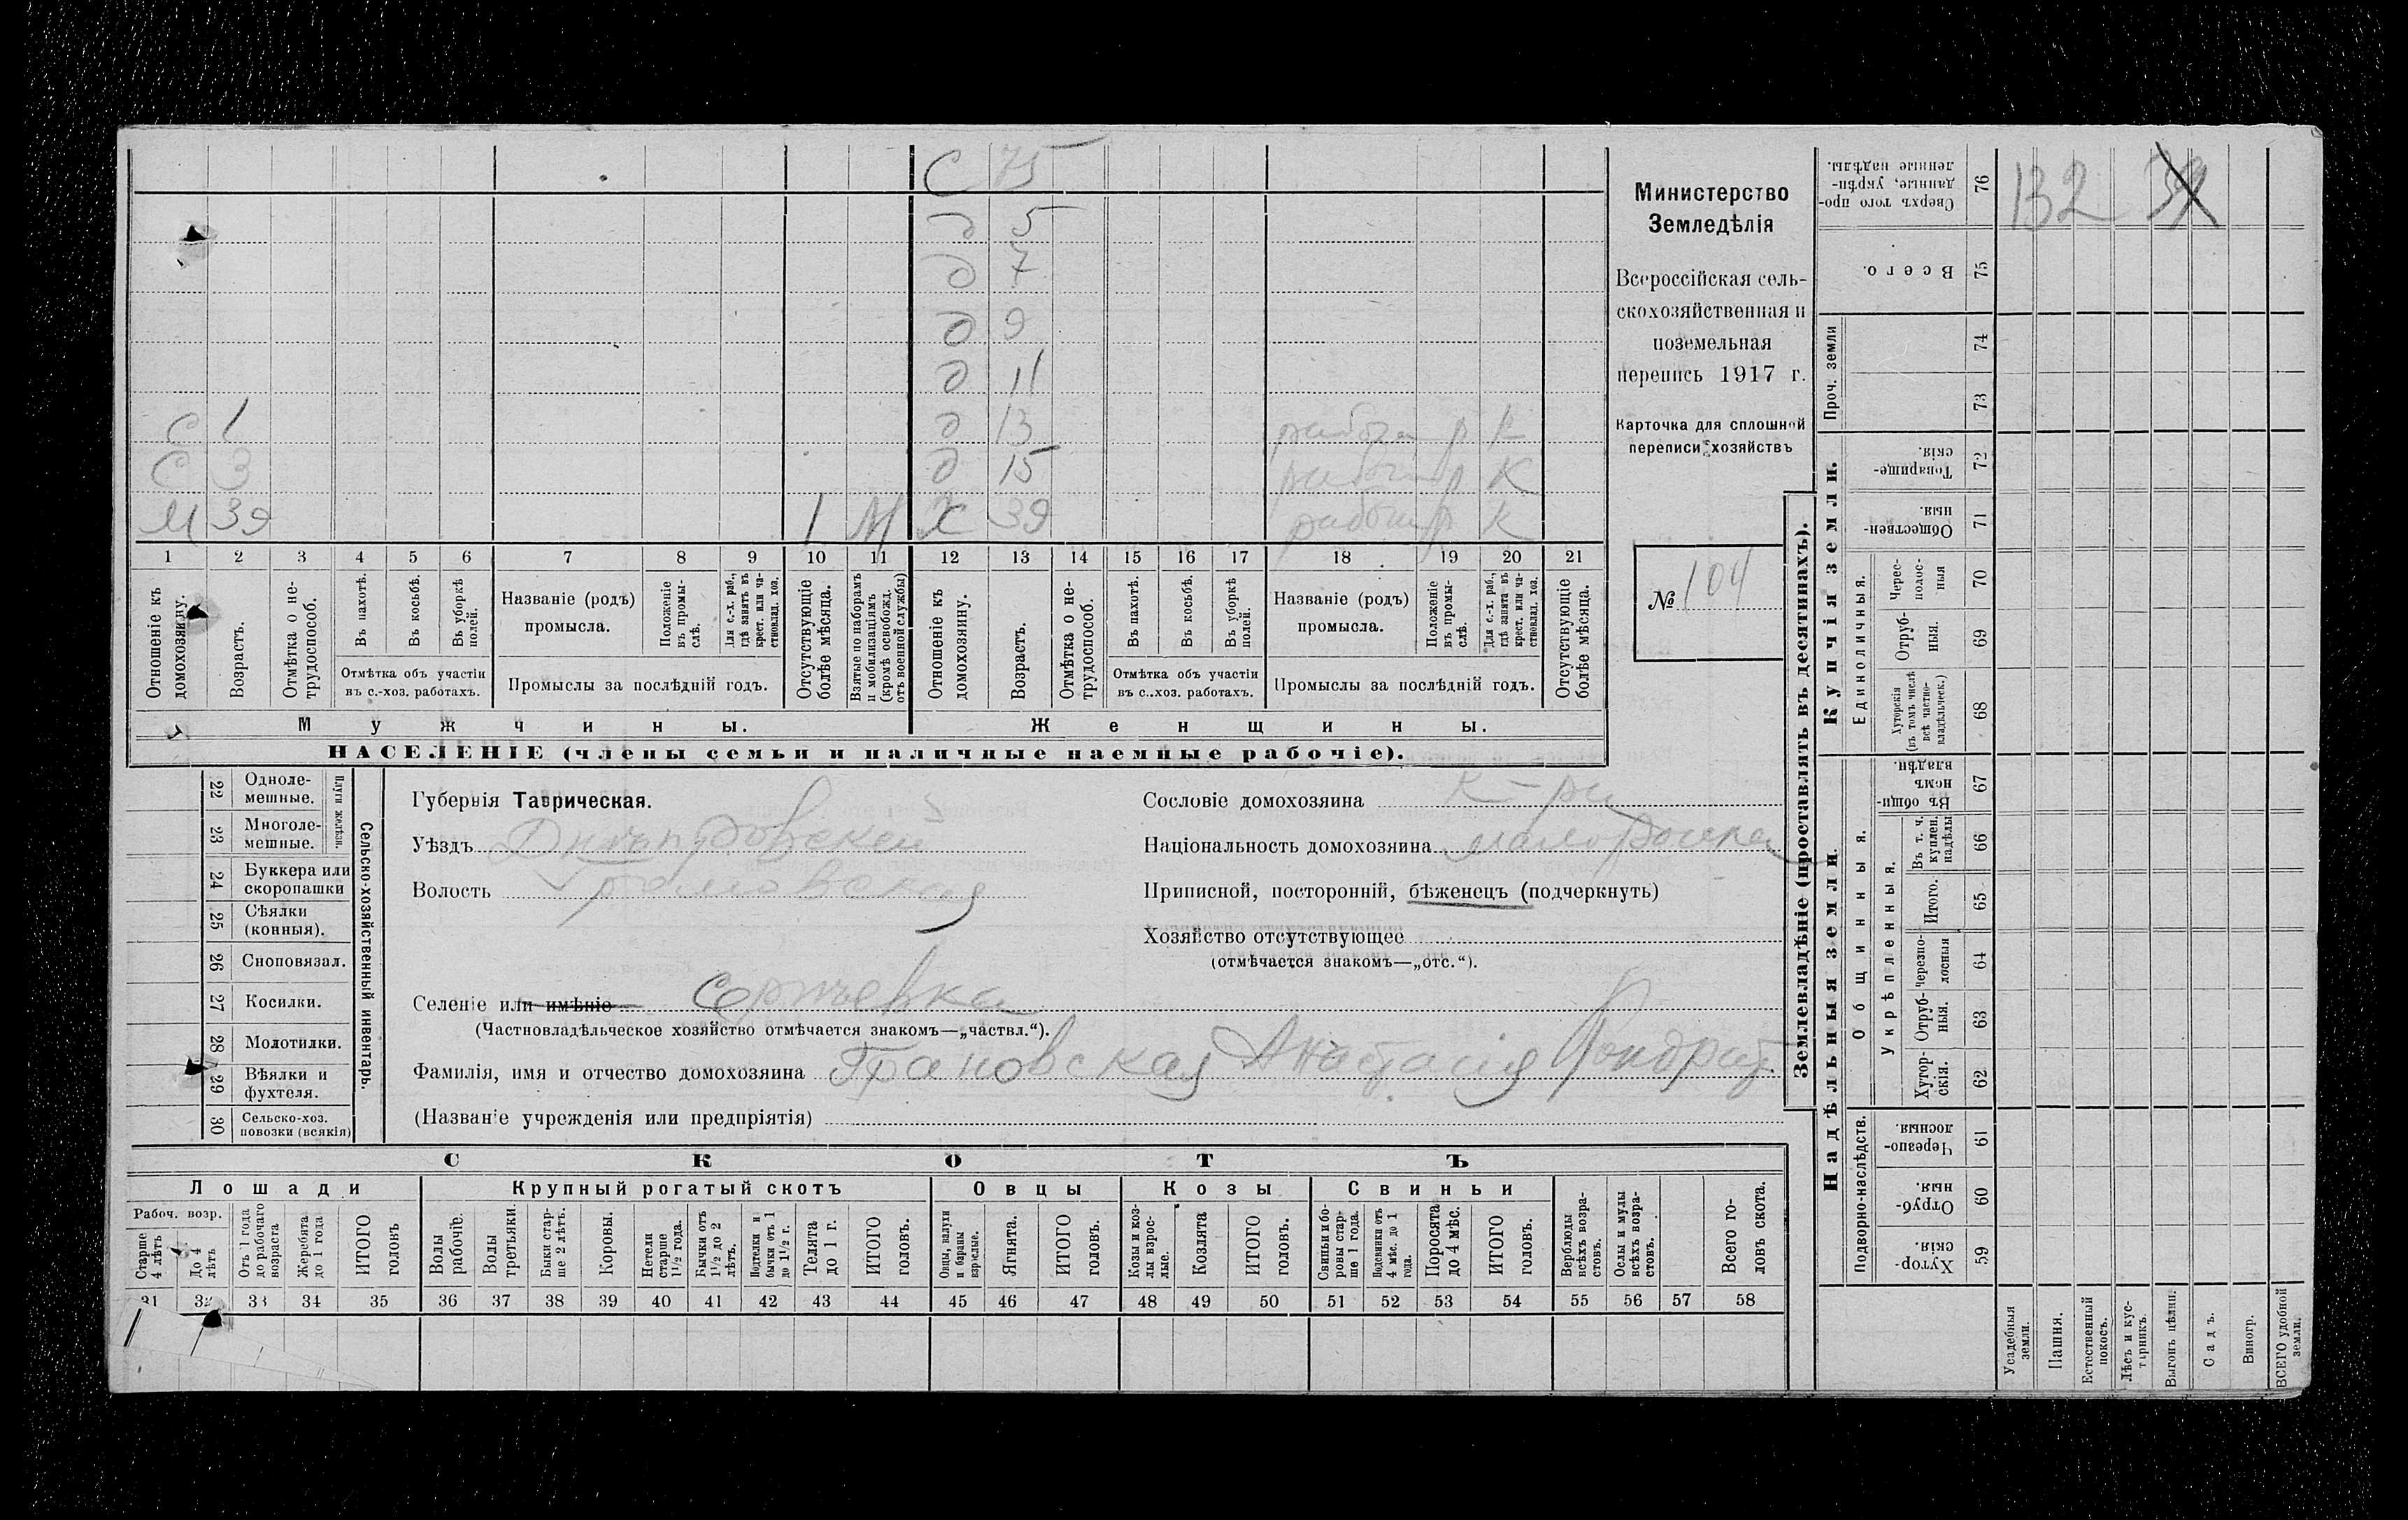 С 75
д 5
д 7
д 9
д 11
С 1 д 13 р К
С 3 д 15 р К
М 39 1 М Х 39 р К
1 2 3 4 5 6 7 8 9 10 11 12 13 14 15 16 17 18 19 20 21
Отношеніе къ домохозяину.
Возрастъ.
Отмѣтка о не-
трудоспособ.
Въ пахотѣ.
Въ косьбѣ.
Въ уборкѣ
полей.
Отмѣтка объ участіи
въ с.-хоз. работахъ.
Названіе (родъ)
промысла.
Положеніе
въ промы-
слѣ.
Для с.-х. раб.,
гдѣ занятъ въ
крест. или ча-
стновлад. хоз.
Промыслы за послѣдній годъ.
Отсутствующіе
болѣе мѣсяца.
Взятые по наборамъ
и мобилизаціямъ
(кромѣ освобожд.
отъ военной службы)
Отношеніе къ
домохозяину.
Возрастъ.
Отмѣтка о не-
трудоспособ.
Въ пахотѣ.
Въ косьбѣ.
Въ уборкѣ
полей.
Отмѣтка объ участіи
въ с.-хоз. работахъ.
Названіе (родъ)
промысла.
Положеніе
въ промы-
слѣ.
Для с.-х. раб.,
гдѣ занята въ
крест. или ча-
стновлад. хоз.
Промыслы за послѣдній годъ.
Отсутствующіе
болѣе мѣсяца.
Мужчины.
Женщины.
НАСЕЛЕНІЕ (члены семьи и наличные наемные рабочіе).
Министерство
Земледѣлія
Всероссійская сель-
скохозяйственная и
поземельная
перепись 1917 г.
Карточка для сплошной
переписи хозяйствъ
№ 104
Сельско-хозяйственный инвентарь.
Плуги желѣзн.
22 Одноле-
мешные.
23 Многоле-
мешные.
24 Буккера или
скоропашки
25 Сѣялки
(конныя).
26 Сноповязал.
27 Косилки.
28 Молотилки.
29 Вѣялки и
фухтеля.
30 Сельско-хоз.
повозки (всякія)
Губернія Таврическая.
Уѣздъ Днѣпровскій
Волость Громовская
Селеніе или имѣніе Сергѣевка
(Частновладѣльческое хозяйство отмѣчается знакомъ—„частвл.“).
Фамилія, имя и отчество домохозяина Грановская Анастасія Кондрат.
(Названіе учрежденія или предпріятія)
Сословіе домохозяина к-ри
Національность домохозяина малороска
Приписной, посторонній, бѣженецъ (подчеркнуть)
Хозяйство отсутствующее
(отмѣчается знакомъ—„отс.“).
СКОТЪ
Лошади
Крупный рогатый скотъ
Овцы
Козы
Свиньи
Рабоч. возр.
Старше
4 лѣтъ
До 4
лѣтъ
Отъ 1 года
до рабочаго
возраста
Жеребята
до 1 года
ИТОГО
головъ
Волы
рабочіе.
Волы
третьяки.
Быки стар-
ше 2 лѣтъ.
Коровы.
Нетели
старше
1½ года.
Бычки отъ
1½ до 2
лѣтъ.
Подтелки и
бычки отъ 1
до 1½ г.
Телята
до 1 г.
ИТОГО
головъ.
Овцы, валухи
и бараны
взрослые.
Ягнята.
ИТОГО
головъ.
Козы и коз-
лы взрос-
лые.
Козлята
ИТОГО
головъ.
Свиньи и бо-
ровы стар-
ше 1 года.
Подсвинки отъ
4 мѣс. до 1
года.
Поросята
до 4 мѣс.
ИТОГО
головъ.
Верблюды
всѣхъ возра-
стовъ.
Ослы и мулы
всѣхъ возра-
стовъ.
Всего го-
ловъ скота.
31 32 33 34 35 36 37 38 39 40 41 42 43 44 45 46 47 48 49 50 51 52 53 54 55 56 57 58
Землевладѣніе (проставлять въ десятинахъ).
Надѣльныя земли.
Купчія земли.
Проч. земли
Подворно-наслѣдств.
Общинныя.
Укрѣпленныя.
Единоличныя.
Хутор-
скія.
59
Отруб-
ныя.
60
Черезпо-
лосныя.
61
Хутор-
скія.
62
Отруб-
ныя.
63
черезпо-
лосныя
64
Итого.
65
Въ т. ч.
куплен.
надѣлы
66
Въ общин-
номъ
владѣн.
67
Хуторскія
(въ томъ числѣ
всѣ частно-
владѣльческ.)
68
Отруб-
ныя.
69
Черес-
полос-
ныя
70
Обществен-
ныя.
71
Товарище-
скія.
72
73
74
Всего.
75
Сверхъ того про-
данные, укрѣп-
ленные надѣлы.
76
132 39
Усадебныя
земли.
Пашня.
Естественный
покосъ.
Лѣсъ и кус-
тарникъ.
Выгонъ цѣлин.
Садъ.
Виногр.
ВСЕГО удобной
земли.